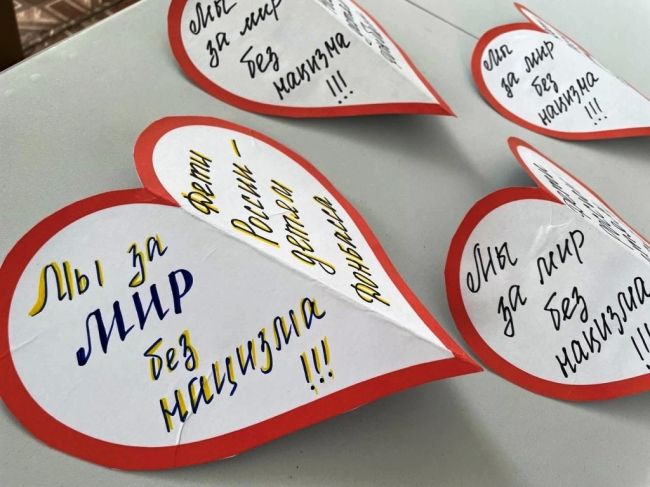 Мы
за мир
без
нацизма
!!!
Мы
за мир
без
нацизма
!!!
Мы за
МИР
без
нацизма
!!!
Дети
России –
детям
Донбасса
Мы
за мир
без
нацизма
!!!